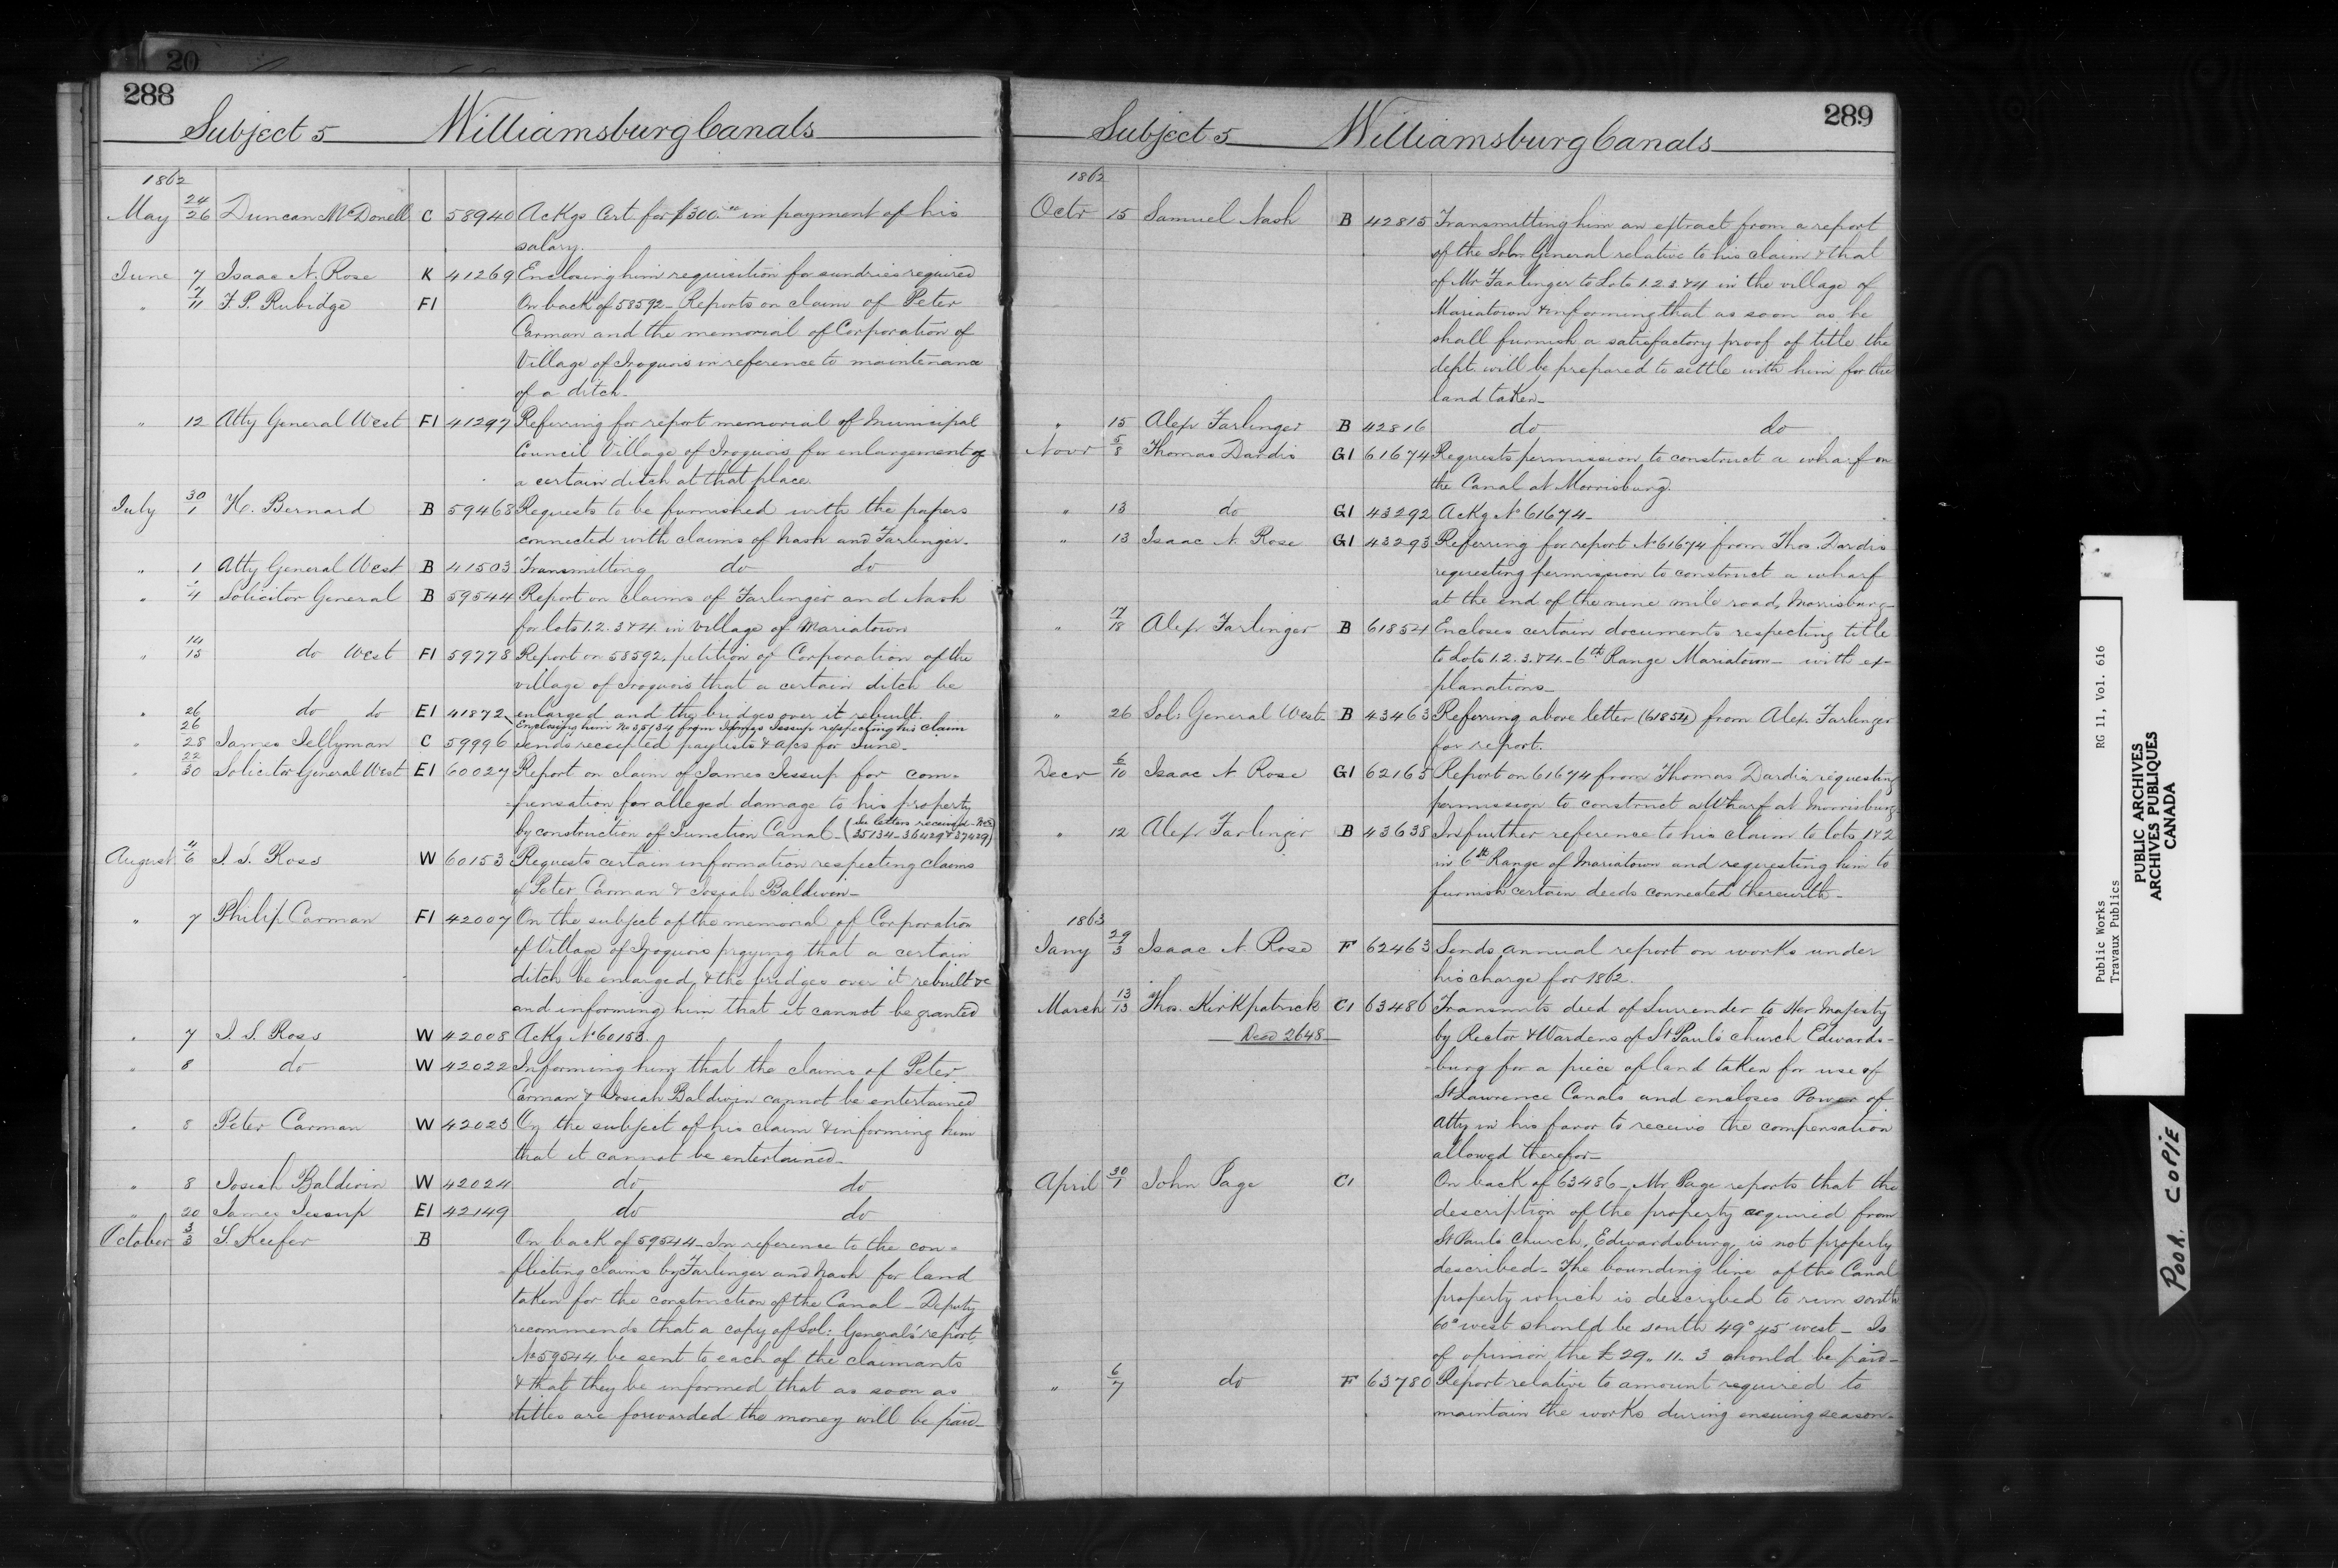 20
288
Subject 5 Williamsburg Canals
1862
May 24/26 Duncan McDonell C 58940 Ackgs Cert for $300.00 in payment of his
salary.
June 7 Isaac N. Rose K 41269 Enclosing him requisition for sundries required
" 7/11 F. P. Rubidge F1 On back of 58592 - Reports on claim of Peter
Carman and the memorial of Corporation of
Village of Iroquois in reference to maintenance
of a ditch.
" 12 Atty General West F1 41297 Referring for report memorial of Municipal
Council Village of Iroquois for enlargement of
a certain ditch at that place.
July 30/1 H. Bernard B 59468 Requests to be furnished with the papers
connected with claims of Nash and Farlinger.
" 1 Atty General West B 41503 Transmitting do do
" 1/4 Solicitor General B 59544 Report on claims of Farlinger and Nash
for lots 1.2.3&4 in village of Mariatown
" 14/15 do West F1 59778 Report on 58592, petition of Corporation of the
village of Iroquois that a certain ditch be
enlarged and the bridges over it rebuilt.
" 26 do do E1 41872 Enclosing him No 35134 from James Jessup respecting his claim
" 26/28 James Tellyman C 59996 Sends receipted paylists & a/cs for June.
" 22/30 Solicitor General West E1 60027 Report on claim of James Jessup for com-
pensation for alleged damage to his property
by construction of Junction Canal - (See letters received - Nos
35134 - 36429 & 37429)
August 4/6 J. S. Ross W 60153 Requests certain information respecting claims
of Peter Carman & Josiah Baldwin -
" 7 Philip Carman F1 42007 On the subject of the memorial of Corporation
of Village of Iroquois praying that a certain
ditch be enlarged, & the bridges over it rebuilt &c
and informing him that it cannot be granted
" 7 J. S. Ross W 42008 Ackg No 60153.
" 8 do W 42022 Informing him that the claims of Peter
Carman & Josiah Baldwin cannot be entertained
" 8 Peter Carman W 42023 On the subject of his claim & informing him
that it cannot be entertained -
" 8 Josiah Baldwin W 42024 do do
" 20 James Jessup E1 42149 do do
October 3/3 S. Keefer B On back of 59544 - In reference to the con-
flicting claims by Farlinger and Nash for land
taken for the construction of the Canal - Deputy
recommends that a copy of Sol: General's report,
No 59544, be sent to each of the claimants
& that they be informed that as soon as
titles are forwarded the money will be paid -
289
Subject 5 Williamsburg Canals
1862
Octr 15 Samuel Nash B 42815 Transmitting him an extract from a report
of the Solr General relative to his claim & that
of Mr Farlinger to Lots 1.2.3&4 in the village of
Mariatown & informing that as soon as he
shall furnish a satisfactory proof of title the
dept. will be prepared to settle with him for the
land taken -
" 15 Alexr Farlinger B 42816 do do
Novr 5/8 Thomas Dardis G1 61674 Requests permission to construct a wharf on
the Canal at Morrisburg.
" 13 do G1 43292 Ackg No 61674 -
" 13 Isaac N. Rose G1 43293 Referring for report No 61674 from Thos. Dardis
requesting permission to construct a wharf
at the end of the nine mile road, Morrisburg -
" 17/18 Alexr Farlinger B 61854 Encloses certain documents respecting title
to Lots 1.2.3.&4 - 6th Range Mariatown - with ex-
planations -
" 26 Sol: General West - B 43463 Referring above letter (61854) from Alexr Farlinger
for report.
Decr 6/10 Isaac N. Rose G1 62165 Report on 61674 from Thomas Dardis requesting
permission to construct a Wharf at Morrisburg
" 12 Alexr Farlinger B 43638 In further reference to his claim to lots 1&2
in 6th Range of Mariatown and requesting him to
furnish certain deeds connected therewith -
1863
Jany 29/3 Isaac N. Rose F 62463 Sends annual report on works under
his charge for 1862.
March 13/13 Thos. Kirkpatrick C1 63486 Transmits deed of Surrender to Her Majesty
Deed 2648
by Rector & Wardens of St Paul's church Edwards-
burg for a piece of land taken for use of
St Lawrence Canals and encloses Power of
Atty in his favor to receive the compensation
allowed therefor -
April 30/1 John Page C1 On back of 63486 - Mr Page reports that the
description of the property acquired from
St Paul's Church, Edwardsburg, is not properly
described - The bounding line of the Canal
property which is described to run south
60° west should be south 49° 45' west - Is
of opinion the £ 29.. 11.. 3 should be paid -
" 6/7 do F 63780 Report relative to amount required to
maintain the works during ensuing season -
Public Works
Travaux Publics
RG 11, Vol. 616
PUBLIC ARCHIVES
ARCHIVES PUBLIQUES
CANADA
POOR COPIE